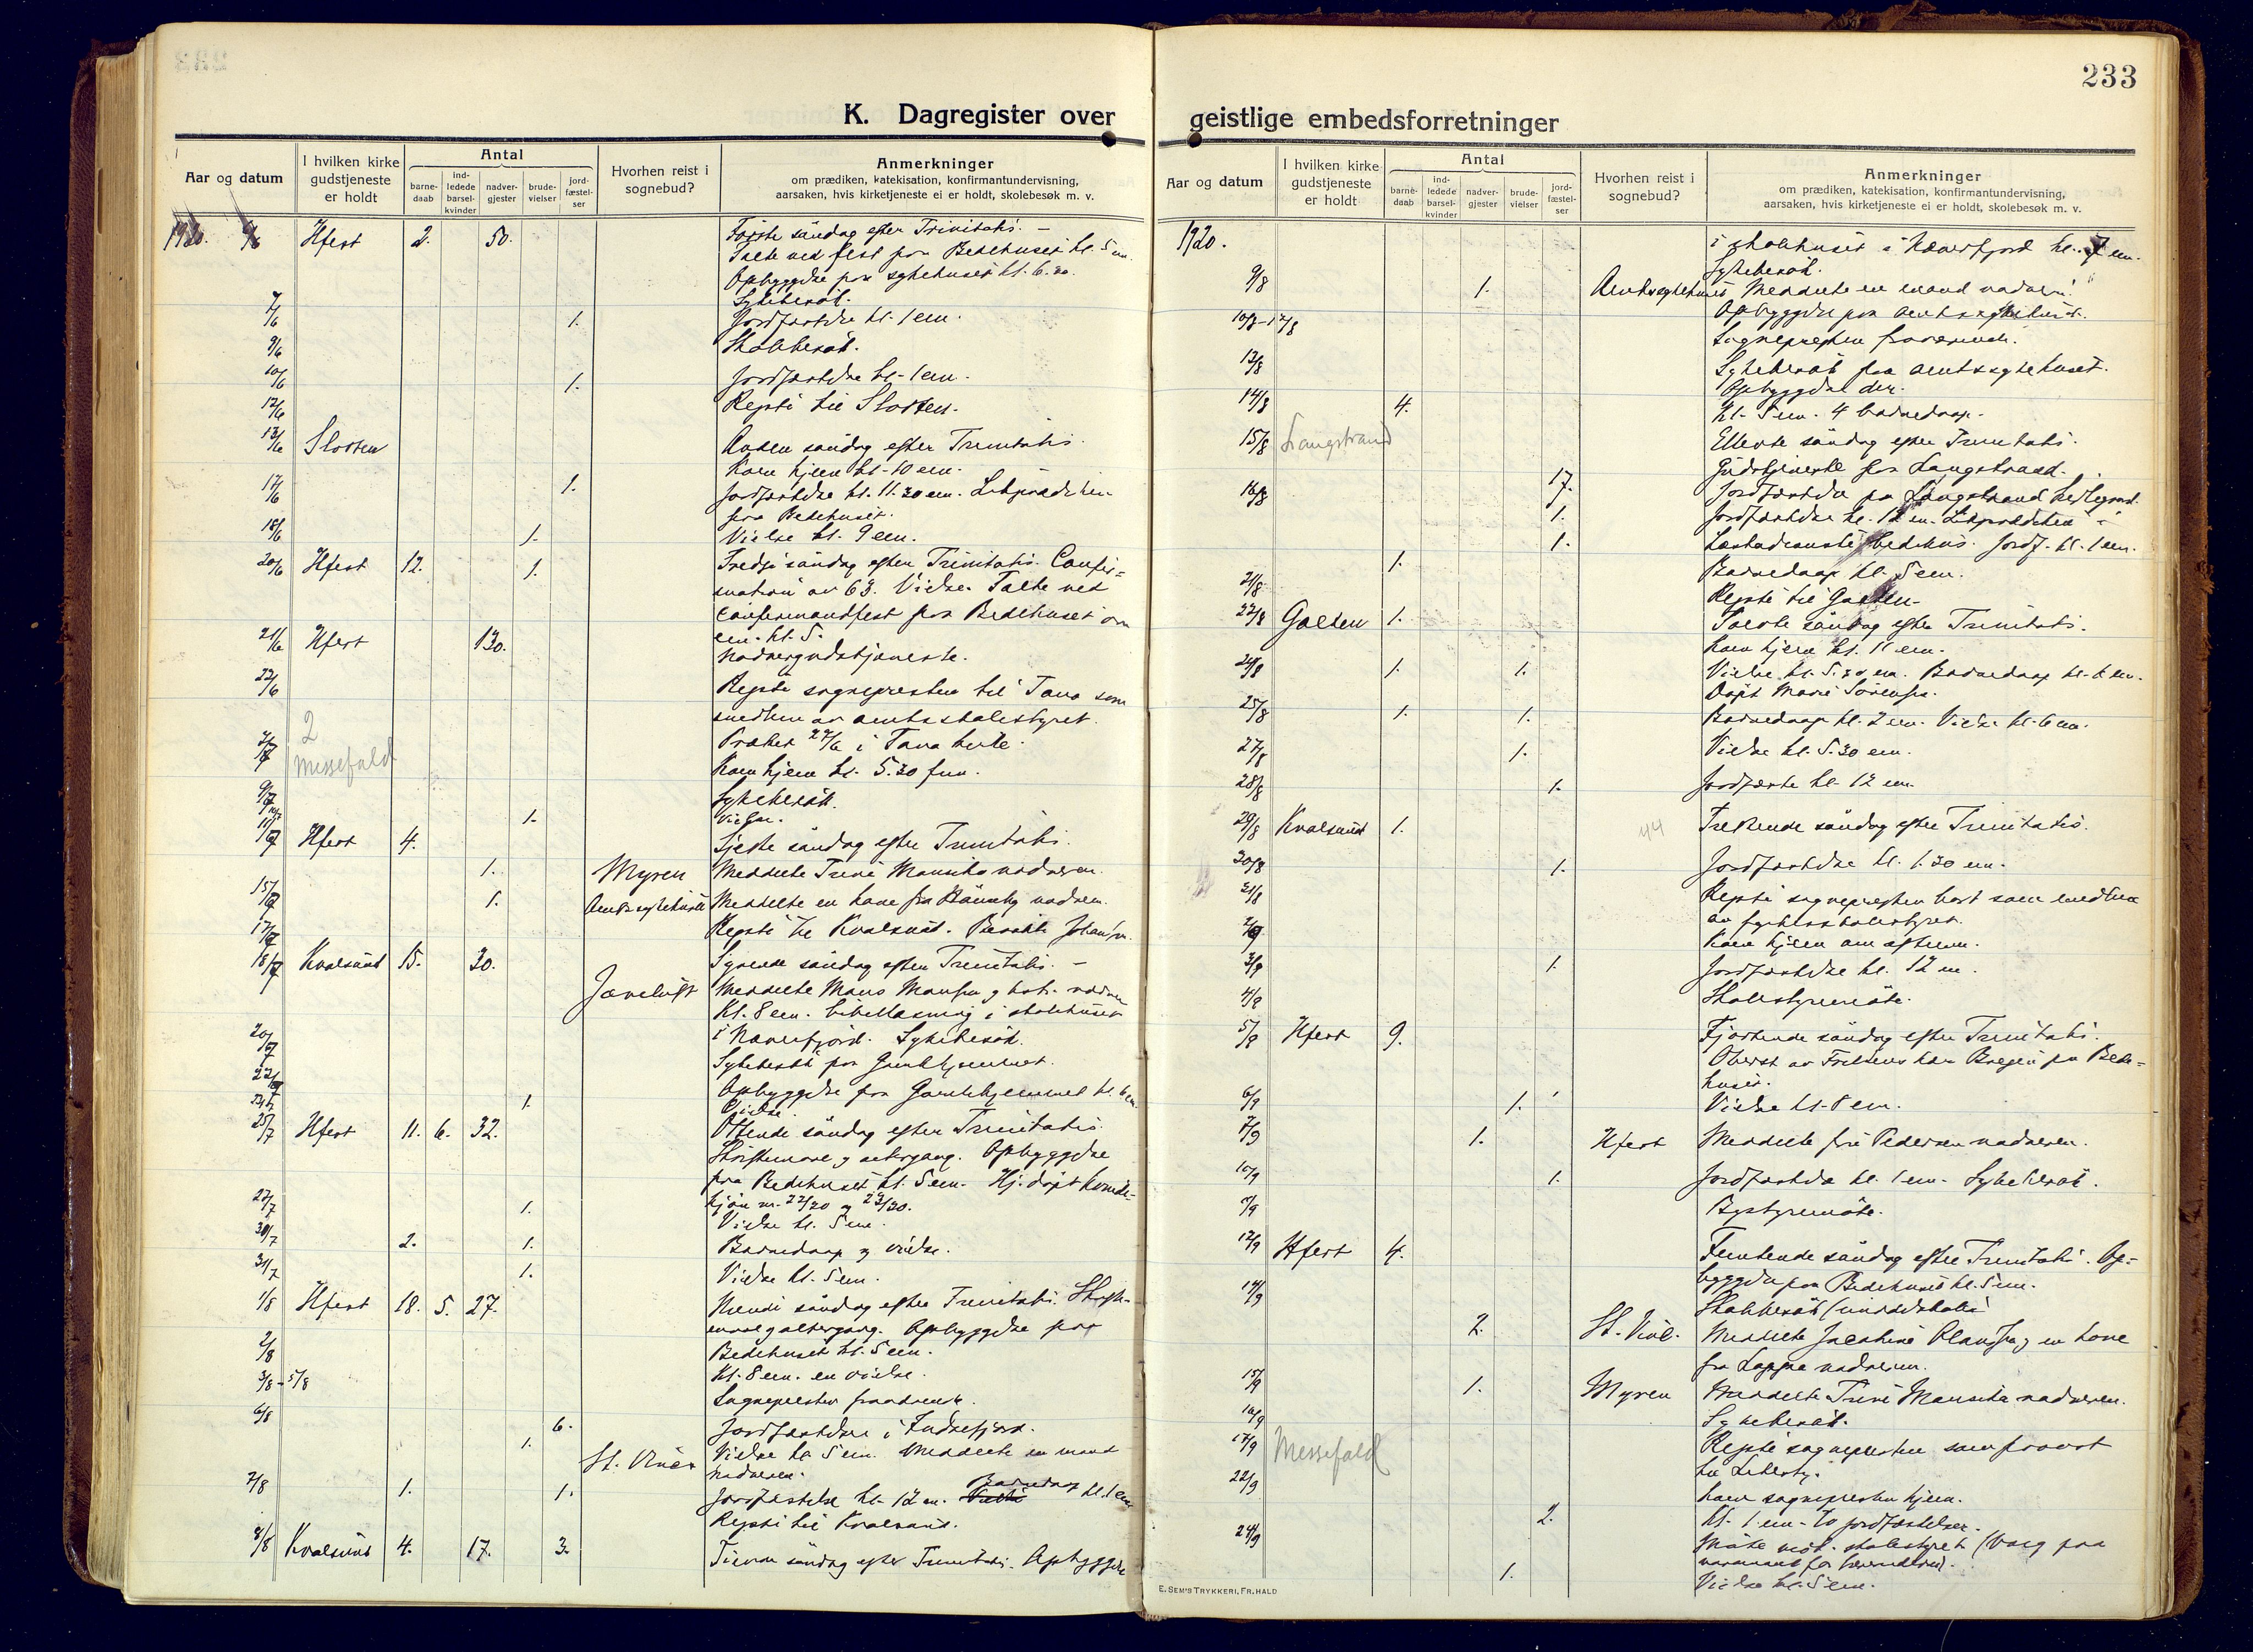 233
K. Dagregister over
Antal
Aar og datum
I hvilken kirke gudstjeneste er holdt
barne-daab
ind-ledede barsel-kvinder
nadver-gjester
brude-vielser
jord-fæstel-ser
Hvorhen reist i sognebud?
Anmerkninger
om prædiken, katekisation, konfirmantundervisning,
aarsaken, hvis kirketjeneste ei er holdt, skolebesøk m. v.
1920. 6/6 Hfest 2. 50. Første søndag efter Trinitatis. –
Talte ved fest paa Bedehuset kl. 5 em.
Opbyggelse paa sykehuset kl. 6.30.
Sykebesøk.
7/6 1. Jordfæstelse kl. 1 em.
9/6 Skolebesøk.
10/6 1. Jordfæstelse kl. 1 em.
12/6 Reiste til Slotten.
13/6 Slotten Anden søndag efter Trinitatis.
Kom hjem kl. 10 em.
17/6 1. Jordfæstelse kl. 11.30 em. Likprædiken
fra Bedehuset.
18/6 1. Vielse kl. 9 em.
20/6 Hfest 12. 1. Tredje søndag efter Trinitatis. Confir-
mation av 63. Vielse. Talte ved
confirmandfest paa Bedehuset om
em. kl. 5.
21/6 Hfest 130. Nadvergudstjeneste.
22/6 Reiste sognepresten til Tana som
medlem av amtsskolestyret.
Præket 27/6 i Tana kirke.
2/7 2 Messefald Kom hjem kl. 5.30 fm.
9/7 Sykebesøk.
1. Vielse.
11/7 Hfest 4. Sjette søndag efter Trinitatis.
1. Myren Meddelte Trine Mansika nadveren.
15/7 1. Amtssykehuset Meddelte en kone fra nadveren.
17/7 Reiste til Kvalsund.
18/7 Kvalsund 15. 30. Syvende søndag efter Trinitatis. –
Jæneluft Meddelte Mans Mansen og nadver
Kl. 8 em. bibellæsning i skolehuset
i Næverfjord. Sykebesøk.
20/7 Sykebesøk paa Gamlehjemmet.
22/7 Opbyggelse paa Gamlehjemmet kl. 6 em.
23/7 1. Vielse.
25/7 Hfest 11. 6. 32. Ottende søndag efter Trinitatis.
Skriftemaal og altergang. Opbyggelse
paa Bedehuset kl. 5 em. Hj. døpt kvinde-
kjøn nr. 22/20 og 23/20.
27/7 1. Vielse kl. 5 em.
30/7 2. 1. Barnedaap og vielse.
31/7 1. Vielse kl. 5 em.
1/8 Hfest 18. 5. 27. Niende søndag efter Trinitatis. Skrifte-
maal og altergang. Opbyggelse paa
Bedehuset kl. 5 em.
2/8 Kl. 8 em. en vielse.
3/8 - 5/8 Sognepresten fraværende.
6/8 6. Jordfæstelse i Indrefjord.
1. St. Vinc. Vielse kl. 5 em. Meddelte en mand
nadveren.
7/8 1. 1. Jordfæstelse kl. 12 m. Barnedaap kl. 1 em.
Reiste til Kvalsund.
8/8 Kvalsund 4. 17. 3. Tiende søndag efter Trinitatis. Opbyggelse
geistlige embedsforretninger
Antal
Aar og datum
I hvilken kirke gudstjeneste er holdt
barne-daab
ind-ledede barsel-kvinder
nadver-gjester
brude-vielser
jord-fæstel-ser
Hvorhen reist i sognebud?
Anmerkninger
om prædiken, katekisation, konfirmantundervisning,
aarsaken, hvis kirketjeneste ei er holdt, skolebesøk m. v.
1920. i skolehuset i Næverfjord kl. 7 em.
Sykebesøk.
9/8 1. Amtssykehuset Meddelte en mand nadveren.
Opbyggelse paa amtssykehuset.
10/8-12/8 Sognepresten fraværende.
13/8 Sykebesøk paa amtssykehuset.
Opbyggelse der.
14/8 4. Kl. 5 em. 4 barnedaap.
15/8 Langstrand Ellevte søndag efter Trinitatis.
Gudstjeneste paa Langstrand.
17. Jordfæstelse paa Langstrand kirkegaard.
16/8 1. Jordfæstelse kl. 12 m. Likprædiken i
1. Læstadianske bedehus. Jordf. kl. 1 em.
1. Barnedaap kl. 5 em.
21/8 Reiste til Galten.
22/8 Galten 1. Tolvte søndag efter Trinitatis.
Kom hjem kl. 11 em.
24/8 1. 1. Vielse kl. 5.30 em. Barnedaap kl. 6 em.
Døpt Marie Sørensen.
25/8 1. 1. Barnedaap kl. 2 em. Vielse kl. 6 em.
27/8 1. Vielse kl. 5.30 em.
28/8 1. Jordfæste kl. 12 em.
29/8 Kvalsund 1. 44 Trettende søndag efter Trinitatis.
30/8 1. Jordfæstelse kl. 1.30 em.
31/8 Reiste sognepresten bort som medlem
av fylkesskolestyret.
2/9 Kom hjem om aftenen.
3/9 1. Jordfæstelse kl. 12 m.
4/9 Skolestyremøte.
5/9 Hfest 9. Fjortende søndag efter Trinitatis.
Oberst av Frelsens hær paa Bede-
huset.
6/9 1. Vielse kl. 8 em.
7/9 1. Hfest Meddelte fru Pedersen nadveren.
10/9 1. Jordfæstelse kl. 1 em. Sykebesøk.
Bystyremøte.
12/9 Hfest 4. Femtende søndag efter Trinitatis. Op-
byggelse paa Bedehuset kl. 5 em.
14/9 Skolebesøk (middelskole)
2. St. Vinc. Meddelte Jacobine Olaussen og en kone
fra Loppa nadveren.
15/9 1. Myren Meddelte Trine Mansika nadveren.
16/9 Sykebesøk.
17/9 Messefald Reiste sognepresten som provst
til Lebesby.
22/9 Kom sognepresten hjem.
2. Kl. 1 em. to jordfæstelser.
24/9 Møte skolestyret (valg paa
1. Vielse kl. 5 em.
E. SEM'S TRYKKERI, FR.HALD